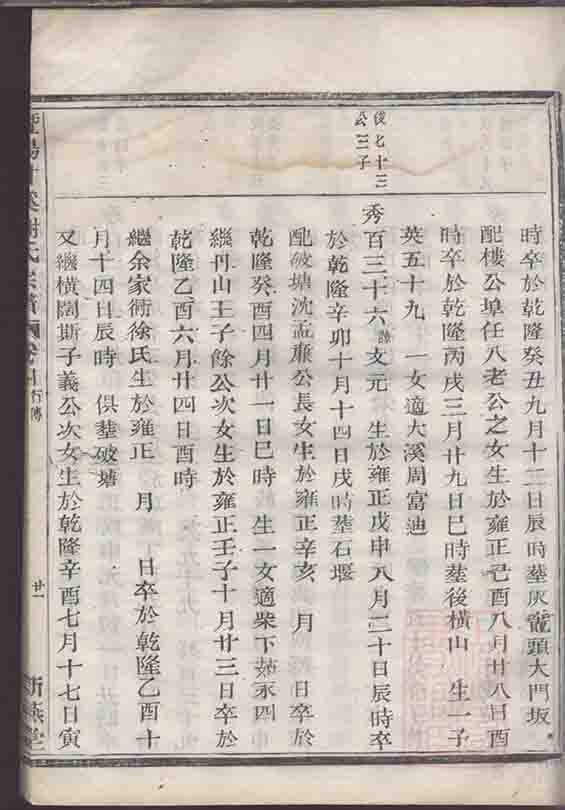 時卒於乾隆癸丑九月十二日辰時塟灰竈頭大門坂
配樓公埠任八老公之女生於雍正己酉八月廿八日酉
時卒於乾隆丙戌三月廿九日巳時塟後橫山　生一子
英五十九　一女適大溪周富迪
俊七十三公三子
秀百三十六　諱文元　生於雍正戊申八月二十日辰時卒
於乾隆辛卯十月十四日戌時塟石堰
配破塘沈孟康公長女生於雍正辛亥　月　日卒於
乾隆癸酉四月廿一日巳時　生一女適柴下茹永四
繼丹山王子餘公次女生於雍正壬子十月廿三日卒於
乾隆乙酉六月廿四日酉時
繼余家衖徐氏生於雍正　月　日卒於乾隆乙酉十
月十四日辰時　俱塟破塘
又繼橫闊斯子義公次女生於乾隆辛酉七月十七日寅
暨陽　溪謝氏宗譜　卷　行傳　廿一